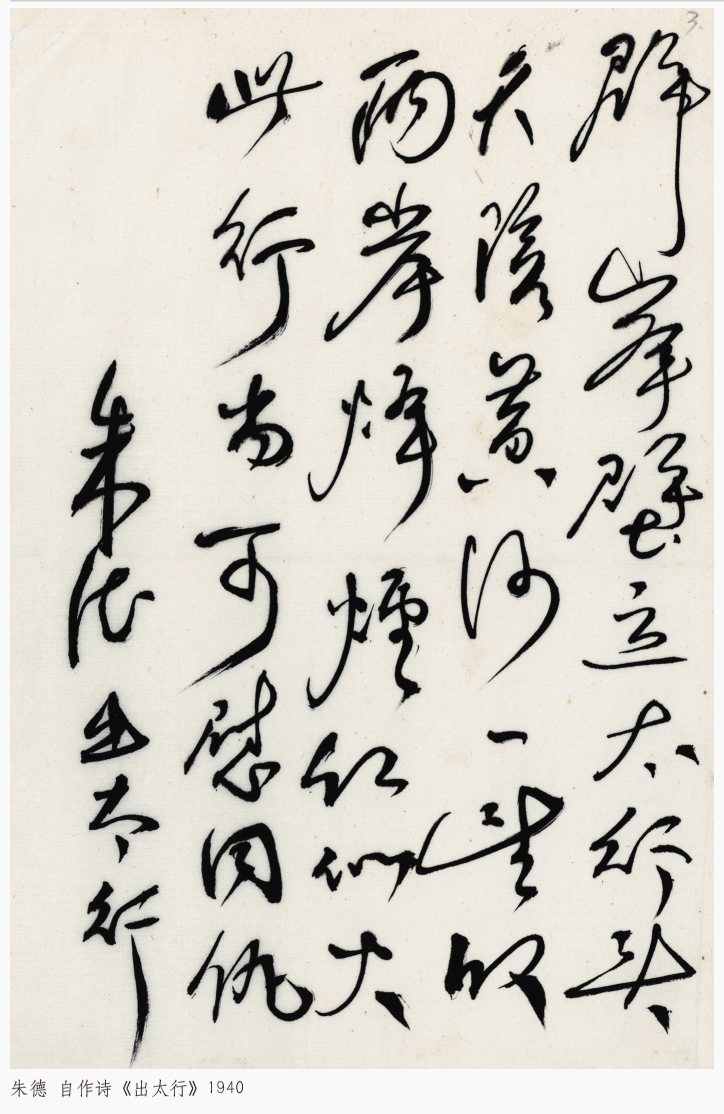 3
群峯壁立太行头
天险黄河一望收
两岸烽煙红似火
此行当可慰同仇
朱德 出太行
朱德 自作诗《出太行》1940